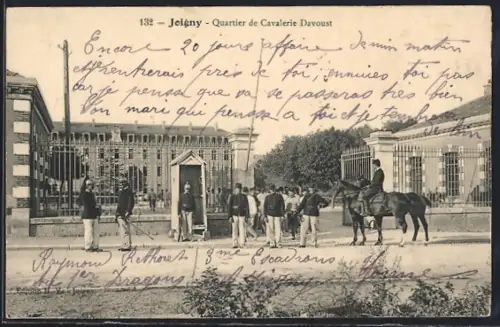 132 - Joigny - Quartier de Cavalerie Davoust
Encore 20 jours à faire Demain matin
je rentrerais près de toi, ennuies toi pas
car je pense que ça se passeras très bien
ton mari qui pense à toi et je tembrasse
de loin
Raymond Rethoret 3me Escadrons
1er Dragons Joigny Yonne